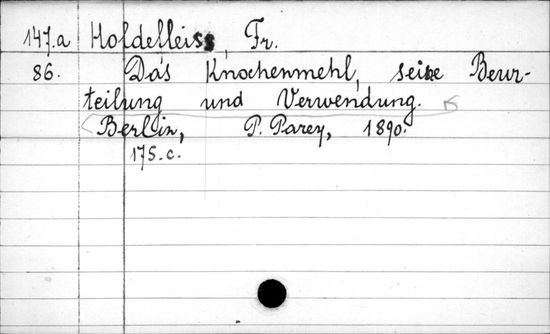 147.a Holdefleiss, Fr.
86. Das Knochenmehl, seine Beur-
teilung und Verwendung.
Berlin, P. Parey, 1890.
175.c.